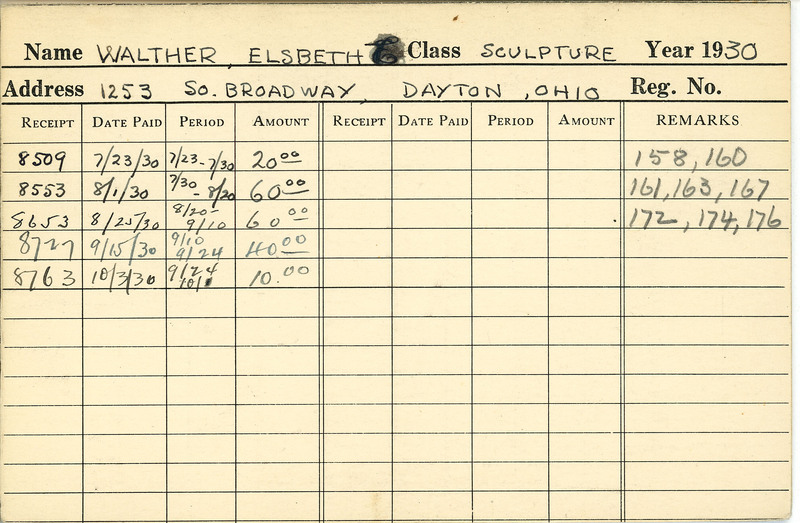 Name WALTHER, ELSBETH E Class SCULPTURE Year 1930
Address 1253 So. BROADWAY, DAYTON, OHIO Reg. No.
RECEIPT DATE PAID PERIOD AMOUNT RECEIPT DATE PAID PERIOD AMOUNT REMARKS
8509 7/23/30 7/23-7/30 20.00 158, 160
8553 8/1/30 7/30 - 8/20 60.00 161, 163, 167
8653 8/25/30 8/20- 9/10 60.00 172, 174, 176
8727 9/15/30 9/10 9/24 40.00
8763 10/3/30 9/24 10/1 10.00